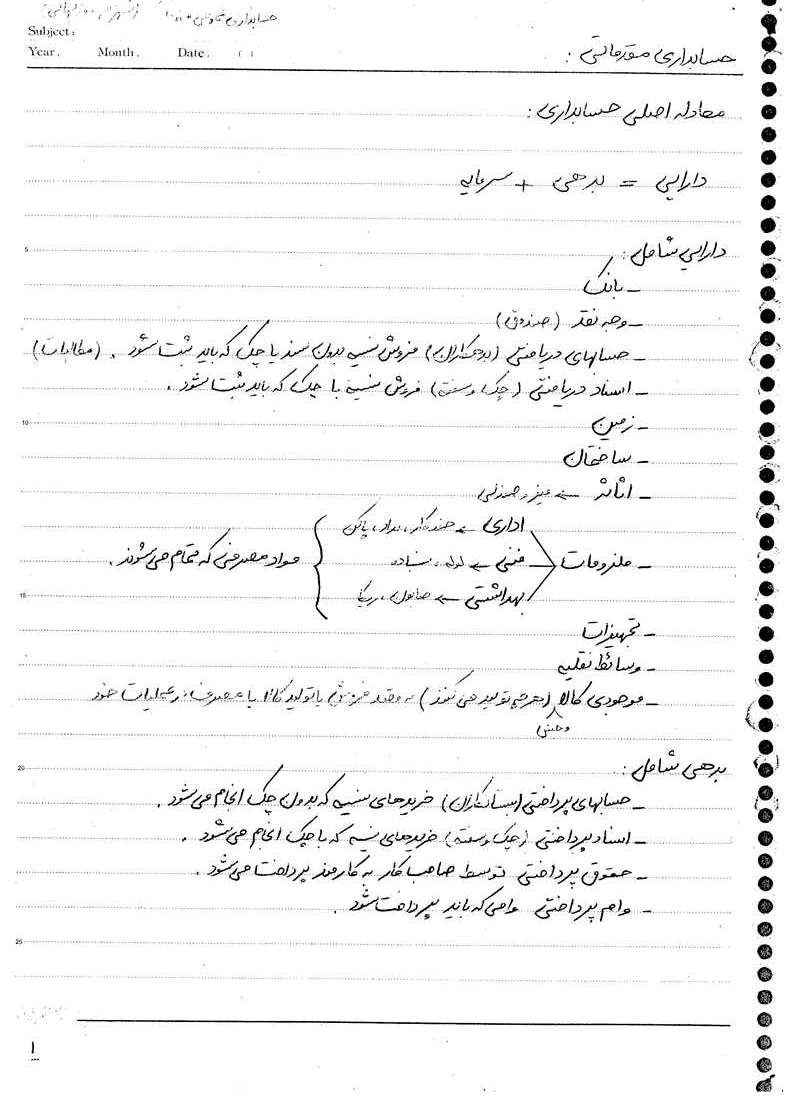 حسابداری
Subject:
Year.    Month.    Date.    ( )
حسابداری مقدماتی :
معادله اصلی حسابداری :
دارایی = بدهی + سرمایه
5
دارایی شامل :
- بانک
- وجه نقد (صندوق)
- حسابهای دریافتنی (بدهکاران) فروش نسیه بدون سند یا چک که باید ثبت شود . (مطالبات)
- اسناد دریافتنی (چک و سفته) فروش نسیه با چک که باید ثبت شود .
10
- زمین
- ساختمان
- اثاثه ← میز و صندلی
اداری ← خودکار، مداد، پاکن
- ملزومات فنی ← لوله، سنباده مواد مصرفی که تمام می‌شوند .
15
بهداشتی ← صابون، ریکا
- تجهیزات
- وسائط نقلیه
- موجودی کالا (هرچه تولید می‌کنند) به قصد فروش یا تولید کالا یا مصرف در عملیات خود
وجنس
20
بدهی شامل :
- حسابهای پرداختنی (بستانکاران) خریدهای نسیه که بدون چک انجام می‌شود .
- اسناد پرداختنی (چک و سفته) خریدهای نسیه که با چک انجام می‌شود .
- حقوق پرداختنی توسط صاحب کار به کارمند پرداخت می‌شود .
- وام پرداختنی وامی که باید پرداخت شود .
25
۱